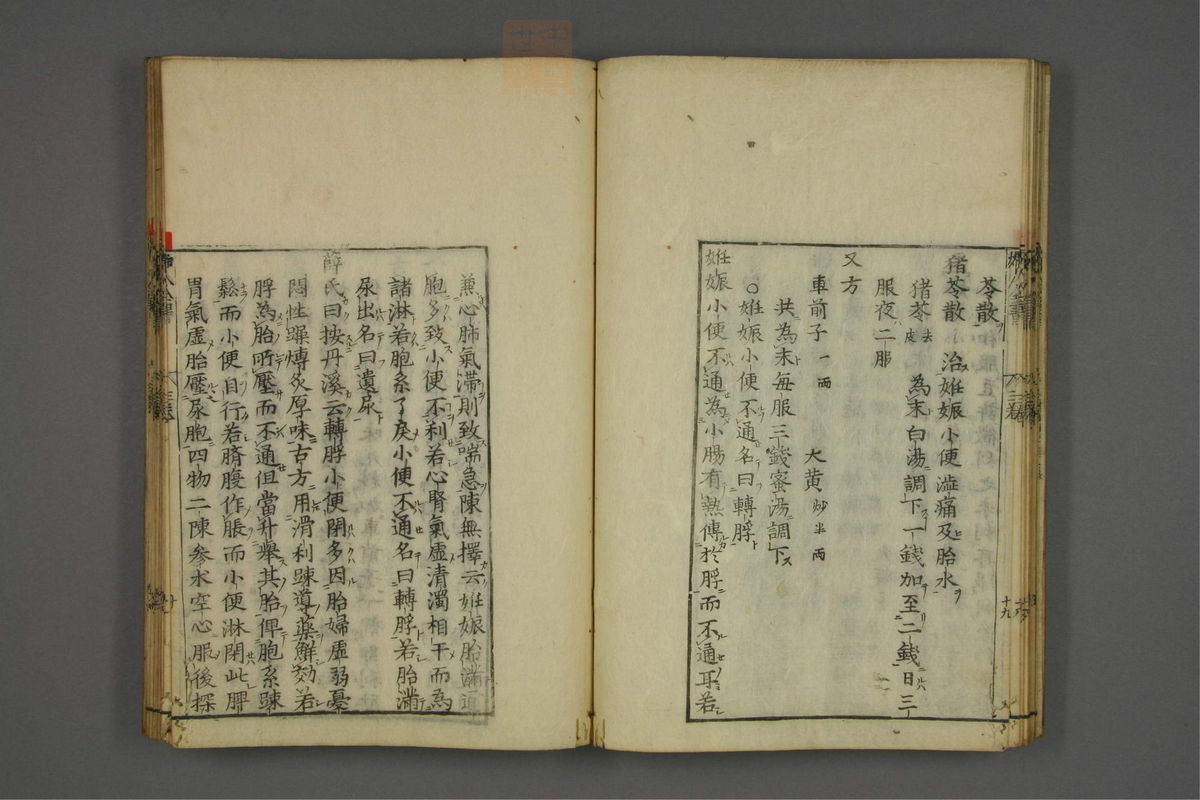 苓散
猪苓散　治姙娠小便澁痛及胎水
猪苓去皮　為末白湯調下一錢加至二錢日三
服夜二服
又方
車前子一兩　大黄炒半兩
共為末每服三錢蜜湯調下
○姙娠小便不通名曰轉脬
姙娠小便不通為小腸有熱傳於脬而不通耳若
兼心肺氣滯則致喘急陳無擇云姙娠胎滿逼
胞多致小便不利若心腎氣虚清濁相干而為
諸淋若胞系了戾小便不通名曰轉脬若胎滿
尿出名曰遺尿
薛氏曰按丹溪云轉脬小便閉多因胎婦虚弱憂
悶性躁煿炙厚味古方用滑利踈導藥鮮効若
脬為胎所壓而不通但當升舉其胎俾胞系踈
鬆而小便自行若臍腹作脹而小便淋閉此脾
胃氣虚胎壓尿胞四物二陳参朮空心服後探
三卷
十九